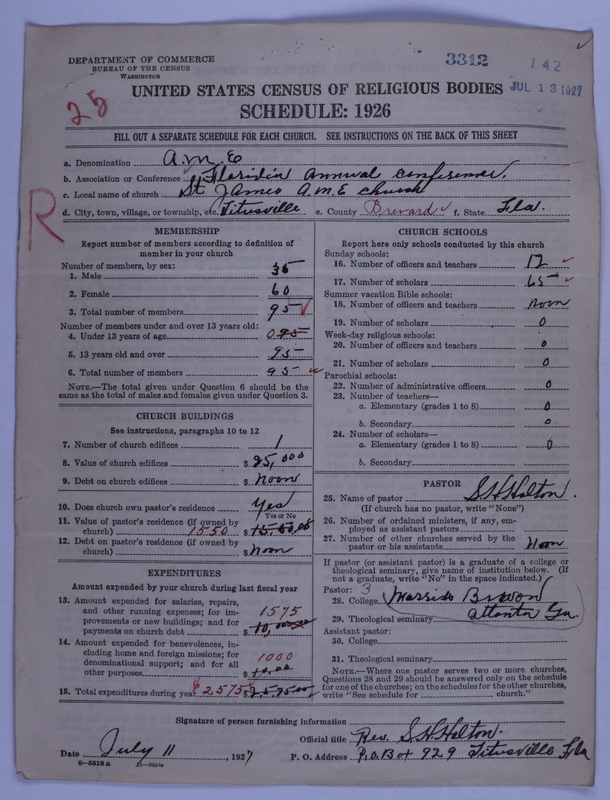 DEPARTMENT OF COMMERCE
BUREAU OF THE CENSUS
WASHINGTON
3312
142
JUL 13 1927
25
R
UNITED STATES CENSUS OF RELIGIOUS BODIES
SCHEDULE: 1926
FILL OUT A SEPARATE SCHEDULE FOR EACH CHURCH. SEE INSTRUCTIONS ON THE BACK OF THIS SHEET
a. Denomination A.M.E
b. Association or Conference Floridia Annual Conference.
c. Local name of church St James A.M.E church
d. City, town, village, or township, etc. Titusville e. County Brevard f. State Fla.
MEMBERSHIP
Report number of members according to definition of
member in your church
Number of members, by sex:
1. Male 35
2. Female 60
3. Total number of members 95
Number of members under and over 13 years old:
4. Under 13 years of age 0 95
5. 13 years old and over 95
6. Total number of members 95
NOTE.—The total given under Question 6 should be the
same as the total of males and females given under Question 3.
CHURCH BUILDINGS
See instructions, paragraphs 10 to 12
7. Number of church edifices 1
8. Value of church edifices $ 25,000
9. Debt on church edifices $ noon
10. Does church own pastor's residence Yes
Yes or No
11. Value of pastor's residence (if owned by
church) 1550 $
12. Debt on pastor's residence (if owned by
church) $ noon
EXPENDITURES
Amount expended by your church during last fiscal year
13. Amount expended for salaries, repairs,
and other running expenses; for im-
provements or new buildings; and for
payments on church debt 1575 $
14. Amount expended for benevolences, in-
cluding home and foreign missions; for
denominational support; and for all
other purposes 1000 $
15. Total expenditures during year $2575 $2575.00
CHURCH SCHOOLS
Report here only schools conducted by this church
Sunday schools:
16. Number of officers and teachers 12
17. Number of scholars 65
Summer vacation Bible schools:
18. Number of officers and teachers noon
19. Number of scholars 0
Week-day religious schools:
20. Number of officers and teachers 0
21. Number of scholars 0
Parochial schools:
22. Number of administrative officers 0
23. Number of teachers—
a. Elementary (grades 1 to 8) 0
b. Secondary 0
24. Number of scholars—
a. Elementary (grades 1 to 8) 0
b. Secondary
PASTOR
25. Name of pastor S H Holton.
(If church has no pastor, write "None")
26. Number of ordained ministers, if any, em-
ployed as assistant pastors
27. Number of other churches served by the
pastor or his assistants Noon
If pastor (or assistant pastor) is a graduate of a college or
theological seminary, give name of institution below. (If
not a graduate, write "No" in the space indicated.)
Pastor: 3
28. College Morris Brown
29. Theological seminary Atlanta Ga.
Assistant pastor:
30. College
31. Theological seminary
NOTE.—Where one pastor serves two or more churches,
Questions 28 and 29 should be answered only on the schedule
for one of the churches; on the schedules for the other churches,
write "See schedule for church."
Signature of person furnishing information
Official title Rev. S. H. Holton
Date July 11, 1927 P. O. Address P.O. Box 929 Titusville Fla
8—5518 a